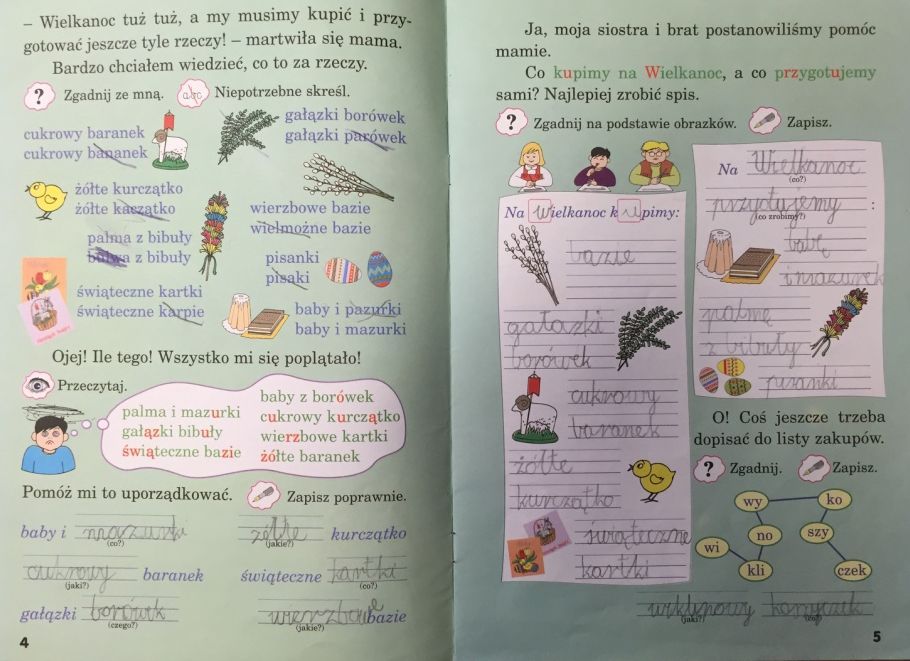 – Wielkanoc tuż tuż, a my musimy kupić i przy-
gotować jeszcze tyle rzeczy! – martwiła się mama.
Bardzo chciałem wiedzieć, co to za rzeczy.
? Zgadnij ze mną. abc Niepotrzebne skreśl.
cukrowy baranek
cukrowy bananek
gałązki borówek
gałązki parówek
żółte kurczątko
żółte kaczątko
wierzbowe bazie
wielmożne bazie
palma z bibuły
bulwa z bibuły
pisanki
pisaki
świąteczne kartki
świąteczne karpie
baby i pazurki
baby i mazurki
Ojej! Ile tego! Wszystko mi się poplątało!
Przeczytaj.
palma i mazurki
gałązki bibuły
świąteczne bazie
baby z borówek
cukrowy kurczątko
wierzbowe kartki
żółte baranek
Pomóż mi to uporządkować. Zapisz poprawnie.
baby i mazurki
(co?)
żółte kurczątko
(jakie?)
cukrowy baranek
(jaki?)
świąteczne kartki
(co?)
gałązki borówk
(czego?)
wierzbowe bazie
(jakie?)
4
Ja, moja siostra i brat postanowiliśmy pomóc
mamie.
Co kupimy na Wielkanoc, a co przygotujemy
sami? Najlepiej zrobić spis.
? Zgadnij na podstawie obrazków. Zapisz.
Na Wielkanoc kupimy:
bazie
gałązki
borówek
cukrowy
baranek
żółte
kurczątko
świąteczne
kartki
Na Wielkanoc
(co?)
przygotujemy :
(co zrobimy?)
babę
i mazurek
palmę
z bibuły
pisanki
O! Coś jeszcze trzeba
dopisać do listy zakupów.
? Zgadnij. Zapisz.
wy
ko
no
szy
wi
kli
czek
wiklinowy koszyczek
(jaki?)
(co?)
5